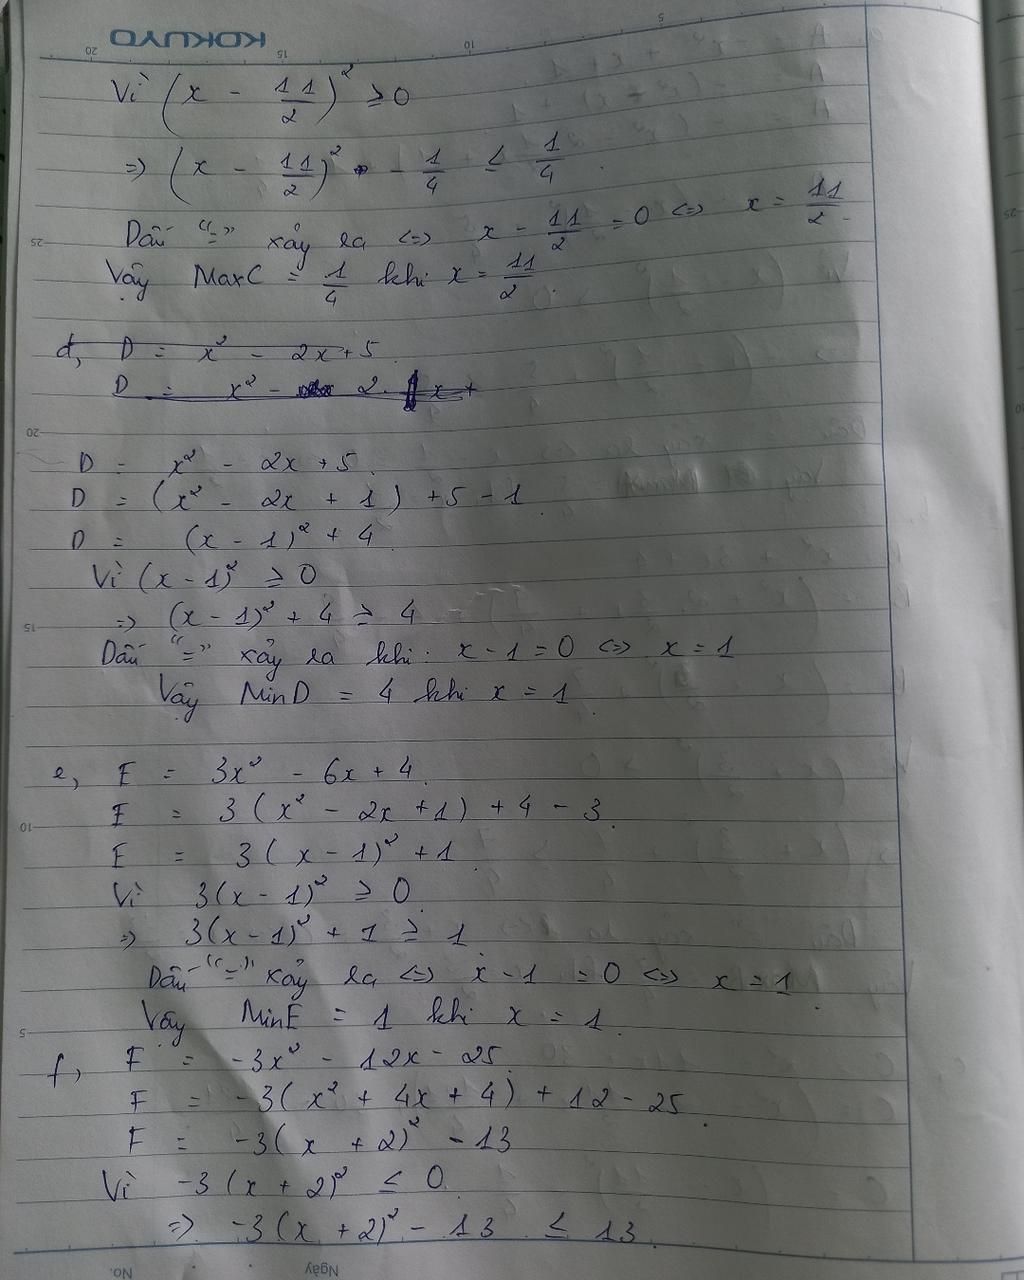 KOKUYO
20 15 10 5
Vì (x - 11/2)² ≥ 0
=> (x - 11/2)² - 1/4 ≤ 1/4
Dấu "=" xảy ra <=> x - 11/2 = 0 <=> x = 11/2
25
Vậy MaxC = 1/4 khi x = 11/2.
d, D = x² - 2x + 5
D = x² - 2. x +
20
D = x² - 2x + 5
D = (x² - 2x + 1) + 5 - 1
D = (x - 1)² + 4
Vì (x - 1)² ≥ 0
=> (x - 1)² + 4 ≥ 4
15
Dấu "=" xảy ra khi: x - 1 = 0 <=> x = 1
Vậy MinD = 4 khi x = 1.
e, E = 3x² - 6x + 4
E = 3(x² - 2x + 1) + 4 - 3
10
E = 3(x - 1)² + 1
Vì 3(x - 1)² ≥ 0
=> 3(x - 1)² + 1 ≥ 1
Dấu "=" xảy ra <=> x - 1 = 0 <=> x = 1.
Vậy MinE = 1 khi x = 1.
5
f, F = -3x² - 12x - 25
F = -3(x² + 4x + 4) + 12 - 25
F = -3(x + 2)² - 13
Vì -3(x + 2)² ≤ 0
=> -3(x + 2)² - 13 ≤ 13
No. Ngày